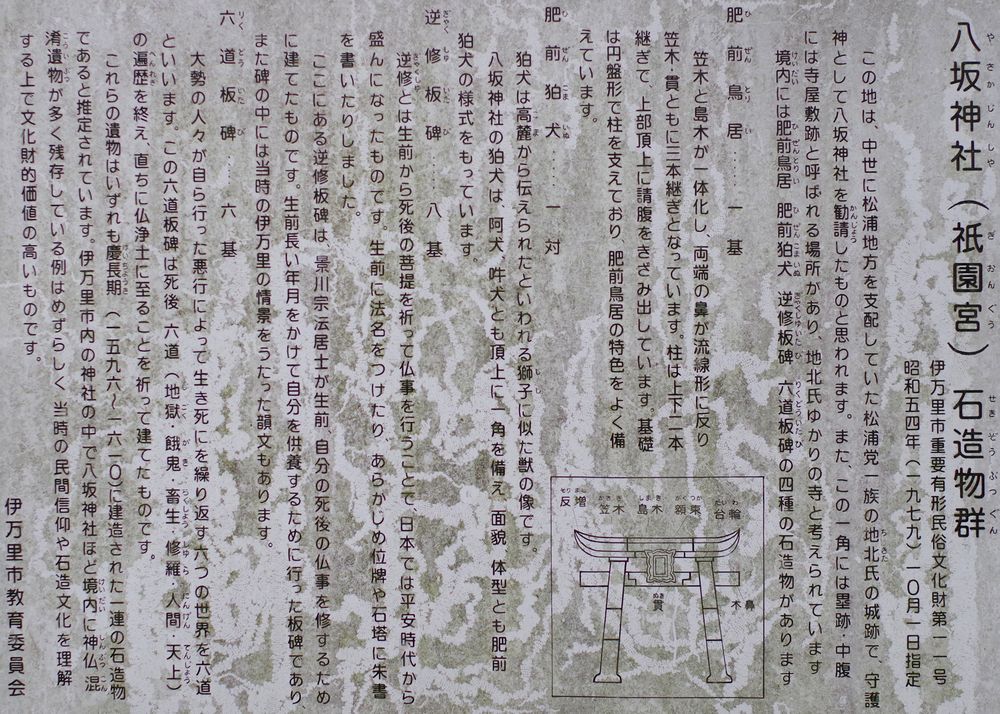 八坂神社(祇園宮)石造物群
伊万里市重要有形民俗文化財第一一号
昭和五四年(一九七九)一〇月一日指定
この地は、中世に松浦地方を支配していた松浦党一族の地北氏の城跡で、守護
神として八坂神社を勧請したものと思われます。また、この一角には塁跡・中腹
には寺屋敷跡と呼ばれる場所があり、地北氏ゆかりの寺と考えられています
境内には肥前鳥居 肥前狛犬 逆修板碑 六道板碑の四種の石造物があります
肥前鳥居……一基
笠木と島木が一体化し、両端の鼻が流線形に反り
笠木・貫ともに三本継ぎとなっています。柱は上下二本
継ぎで、上部頂上に請腹をきざみ出しています。基礎
は円盤形で柱を支えており、肥前鳥居の特色をよく備
えています。
肥前狛犬……一対
狛犬は高麗から伝えられたといわれる獅子に似た獣の像です。
八坂神社の狛犬は、阿犬、吽犬とも頂上に一角を備え、面貌、体型とも肥前
狛犬の様式をもっています。
逆修板碑……八基
逆修とは生前から死後の菩提を祈って仏事を行うことで、日本では平安時代から
盛んになったものです。生前に法名をつけたり、あらかじめ位牌や石塔に朱書
を書いたりしました。
ここにある逆修板碑は、景川宗法居士が生前、自分の死後の仏事を修するため
に建てたものです。生前長い年月をかけて自分を供養するために行った板碑であり、
また碑の中には当時の伊万里の情景をうたった韻文もあります。
六道板碑……六基
大勢の人々が自ら行った悪行によって生き死にを繰り返す六つの世界を六道
といいます。この六道板碑は死後 六道(地獄・餓鬼・畜生・修羅・人間・天上)
の遍歴を終え、直ちに仏浄土に至ることを祈って建てたものです。
これらの遺物はいずれも慶長期(一五九六〜一六一〇)に建造された一連の石造物
であると推定されています。伊万里市内の神社の中で八坂神社ほど境内に神仏混
淆遺物が多く残存している例はめずらしく、当時の民間信仰や石造文化を理解
する上で文化財的価値の高いものです。
伊万里市教育委員会
反増 笠木 島木 額束 台輪
貫
木鼻